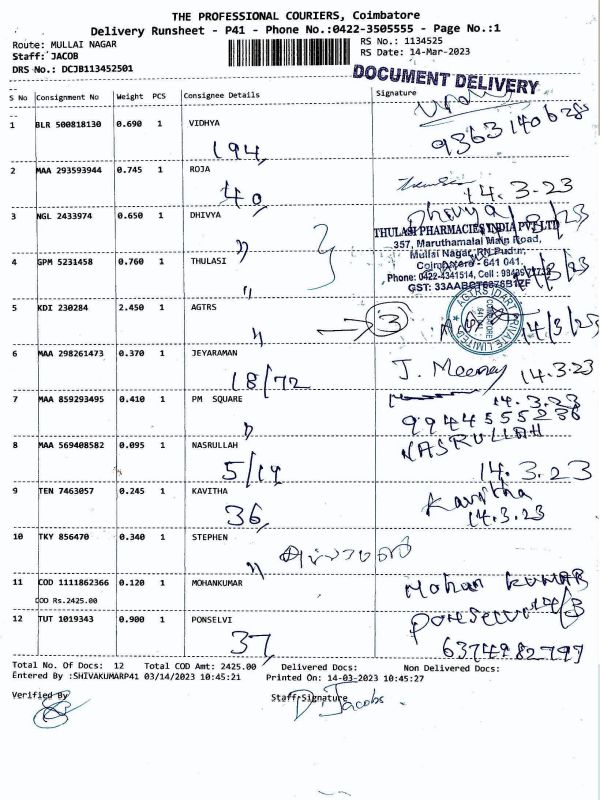 THE PROFESSIONAL COURIERS, Coimbatore
Delivery Runsheet - P41 - Phone No.:0422-3505555 - Page No.:1
Route: MULLAI NAGAR RS No.: 1134525
Staff: JACOB RS Date: 14-Mar-2023
DRS No.: DCJB113452501
DOCUMENT DELIVERY
S No Consignment No Weight PCS Consignee Details Signature
1 BLR 500818130 0.690 1 VIDHYA
194
2 MAA 293593944 0.745 1 ROJA
40 14.3.23
3 NGL 2433974 0.650 1 DHIVYA Dhivya
THULASI PHARMACIES INDIA PVT LTD
357, Maruthamalai Main Road,
Mullai Nagar, RN Pudur,
4 GPM 5231458 0.760 1 THULASI
Coimbatore - 641 041.
Phone: 0422-4341514, Cell :
GST:
5 KDI 230284 2.450 1 AGTRS
3 14/3/23
6 MAA 298261473 0.370 1 JEYARAMAN
18/72 J. 14.3.23
7 MAA 859293495 0.410 1 PM SQUARE 14.3.23
9944555236
8 MAA 569408582 0.095 1 NASRULLAH NASRULLAH
5/14 14.3.23
9 TEN 7463057 0.245 1 KAVITHA Kavitha
36 14.3.23
10 TKY 856470 0.340 1 STEPHEN
11 COD 1111862366 0.120 1 MOHANKUMAR Mohan KUMAR
COD Rs.2425.00
12 TUT 1019343 0.900 1 PONSELVI
37 6374982797
Total No. Of Docs: 12 Total COD Amt: 2425.00 Delivered Docs: Non Delivered Docs:
Entered By :SHIVAKUMARP41 03/14/2023 10:45:21 Printed On: 14-03-2023 10:45:27
Verified By Staff Signature
D. Jacobs